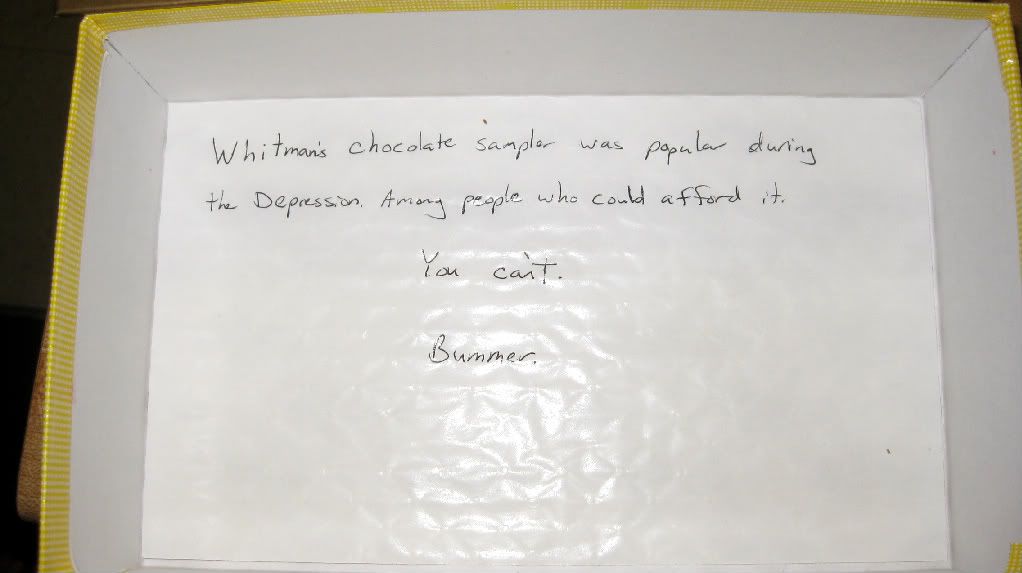 Whitman's chocolate sampler was popular during
the Depression. Among people who could afford it.
You can't.
Bummer.